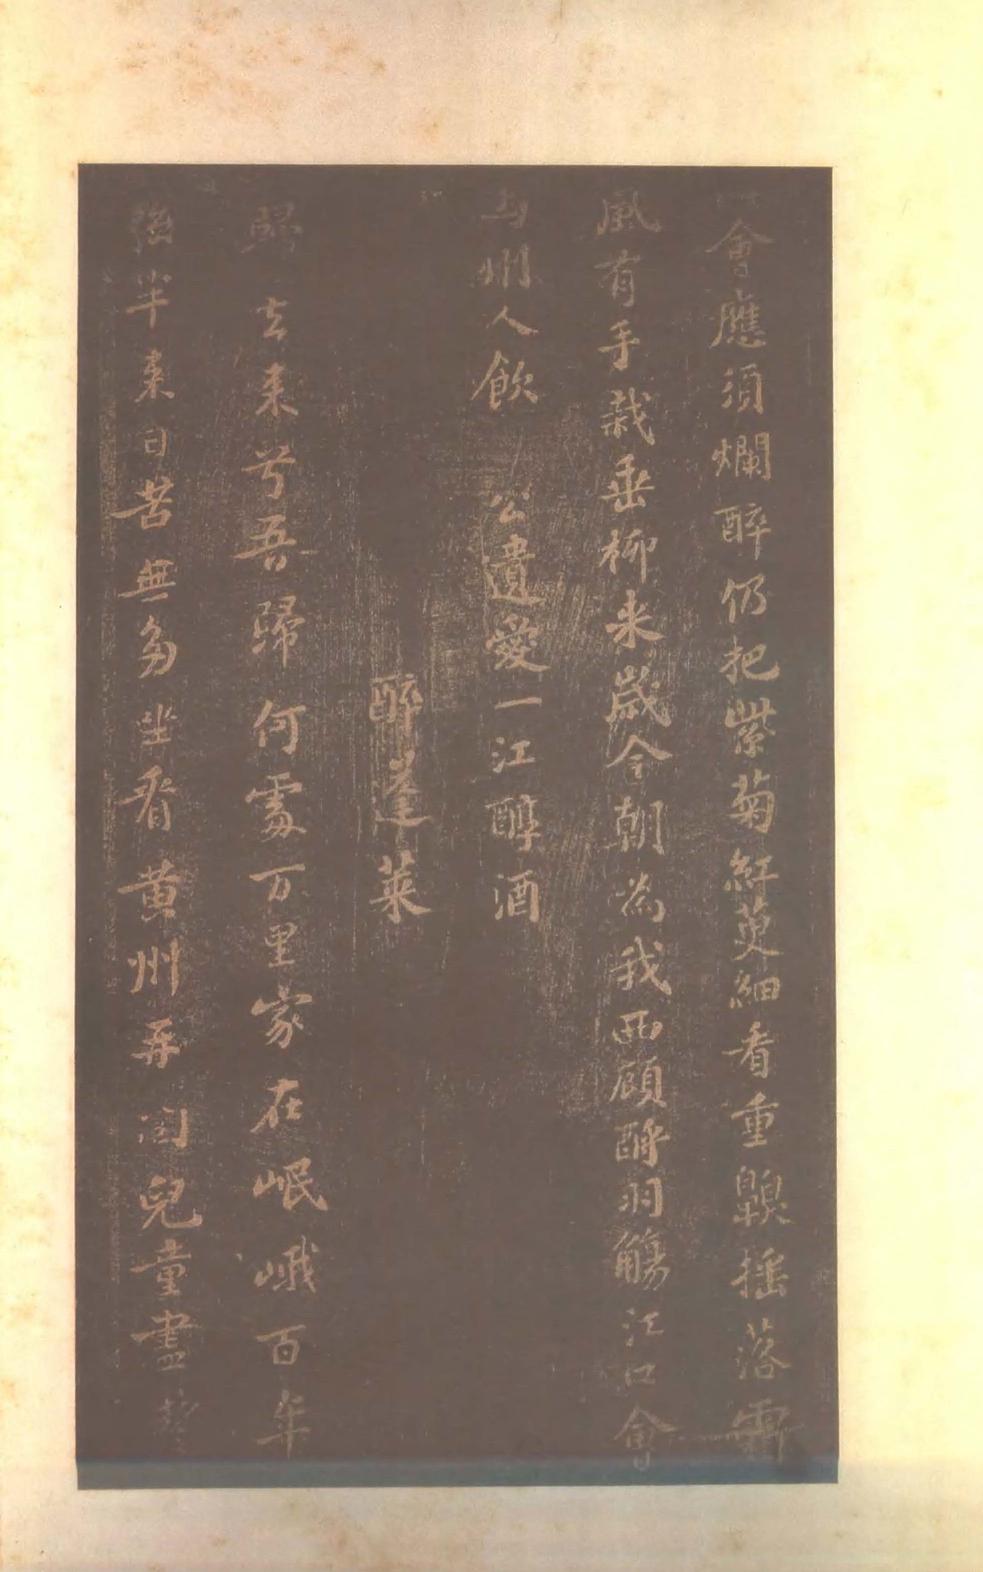 會應須爛醉仍把紫菊紅萸細看重齅搖落霜
風有手栽垂柳来歲今朝為我西顧酹羽觴江口會
與州人飲 公遺愛一江醇酒
醉蓬萊
歸去来兮吾歸何處万里家在岷峨百年
強半来日苦無多坐看黄州再閏兒童盡